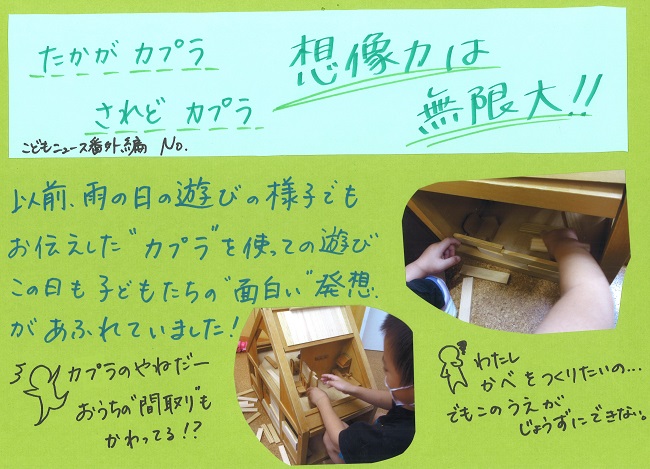 たかが カプラ
されど カプラ
想像力は
無限大!!
こどもニュース番外編 No.
以前、雨の日の遊びの様子でも
お伝えした"カプラ"を使っての遊び
この日も子どもたちの"面白い"発想
があふれていました!
カプラのやねだー
おうちの"間取り"も
かわってる!?
わたし
かべをつくりたいの…
でもこのうえが
じょうずにできない。